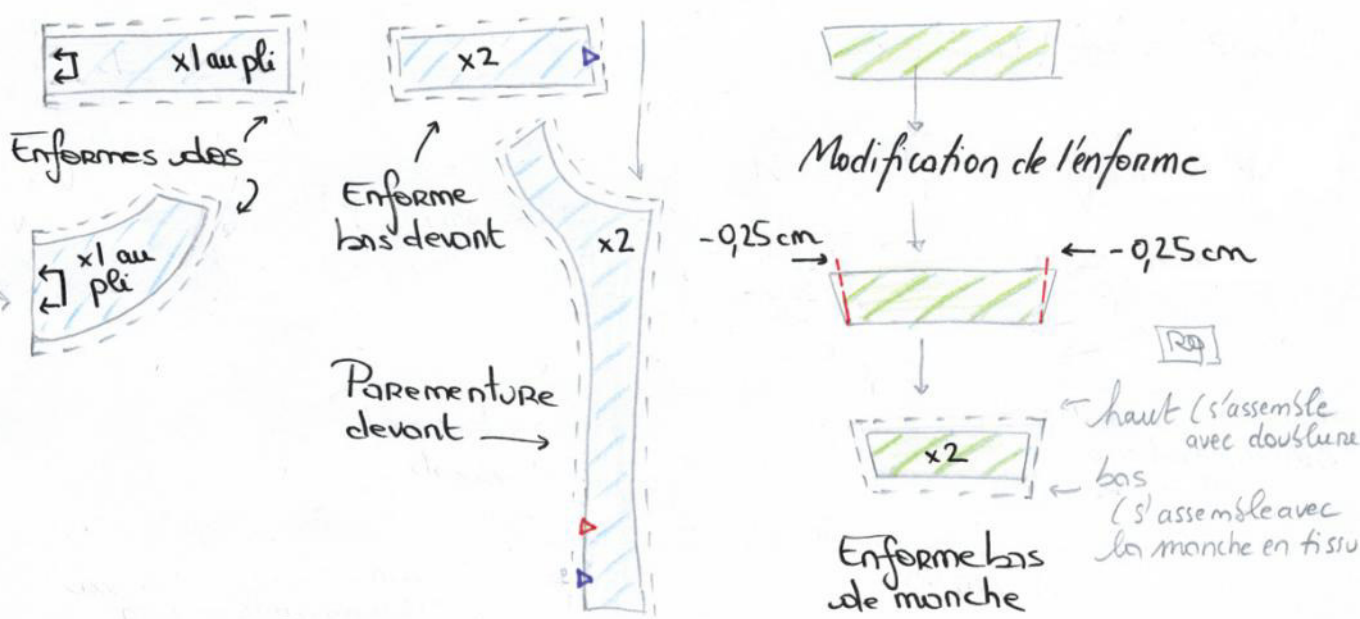 x1 au pli
Enformes dos
x1 au
pli
x2
Enforme
bas devant
x2
Parementure
devant
Modification de l'enforme
-0,25 cm
-0,25 cm
x2
haut (s'assemble
avec doublure
bas
(s'assemble avec
la manche en tissu
Enforme bas
de manche